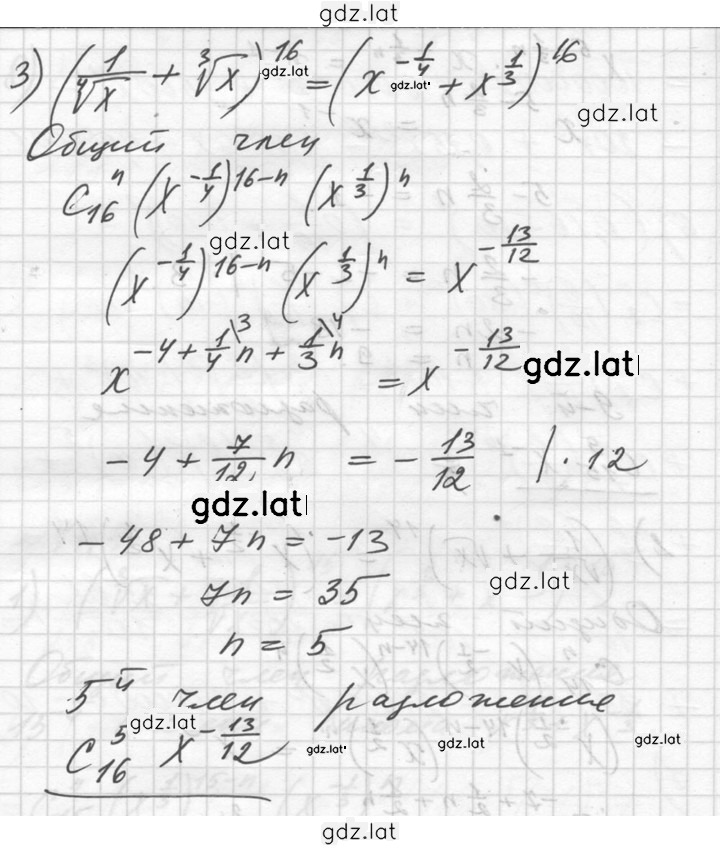 gdz.lat
3) (1/∜x + ∛x)^16 = (x^(-1/4) + x^(1/3))^16
gdz.lat
gdz.lat
gdz.lat
Общий член
C_16^n (x^(-1/4))^(16-n) (x^(1/3))^n
gdz.lat
(x^(-1/4))^(16-n) (x^(1/3))^n = x^(-13/12)
x^(-4 + 1/4\3 n + 1/3\4 n) = x^(-13/12)
gdz.lat
-4 + 7/12 n = -13/12 | · 12
gdz.lat
-48 + 7n = -13
gdz.lat
7n = 35
n = 5
5й член разложение
gdz.lat
C_16^5 x^(-13/12)
gdz.lat
gdz.lat
gdz.lat
gdz.lat